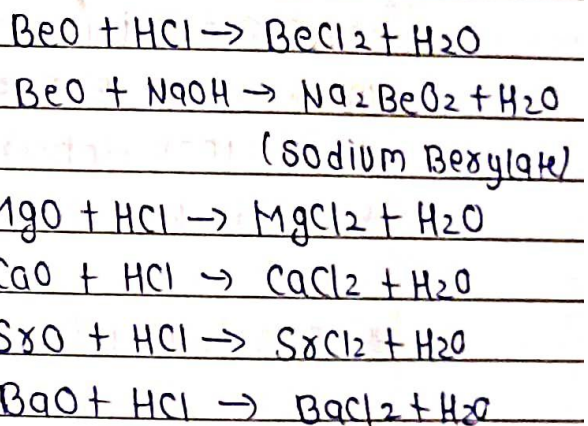 BeO + HCl → BeCl2 + H2O
BeO + NaOH → Na2BeO2 + H2O
(Sodium Berylate)
MgO + HCl → MgCl2 + H2O
CaO + HCl → CaCl2 + H2O
SrO + HCl → SrCl2 + H2O
BaO + HCl → BaCl2 + H2O